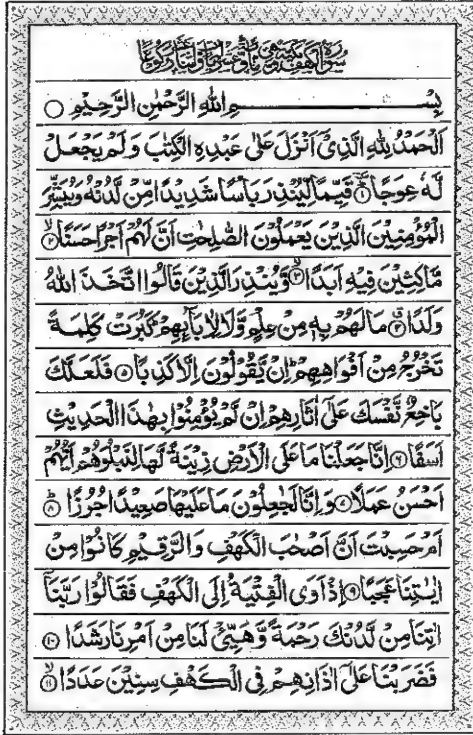 سُوْرَةُ الْكَهْفِ مَكِّيَّةٌ
بِسْـــــــــــمِ اللّٰهِ الرَّحْمٰنِ الرَّحِيْمِ ○
اَلْحَمْدُ لِلّٰهِ الَّذِيْٓ اَنْزَلَ عَلٰى عَبْدِهِ الْكِتٰبَ وَلَمْ يَجْعَلْ
لَّهٗ عِوَجًا ۝١ قَيِّمًا لِّيُنْذِرَ بَاْسًا شَدِيْدًا مِّنْ لَّدُنْهُ وَيُبَشِّرَ
الْمُؤْمِنِيْنَ الَّذِيْنَ يَعْمَلُوْنَ الصّٰلِحٰتِ اَنَّ لَهُمْ اَجْرًا حَسَنًا ۝٢
مَّاكِثِيْنَ فِيْهِ اَبَدًا ۝٣ وَّيُنْذِرَ الَّذِيْنَ قَالُوا اتَّخَذَ اللّٰهُ
وَلَدًا ۝٤ مَا لَهُمْ بِهٖ مِنْ عِلْمٍ وَّلَا لِاٰبَآئِهِمْ كَبُرَتْ كَلِمَةً
تَخْرُجُ مِنْ اَفْوَاهِهِمْ اِنْ يَّقُوْلُوْنَ اِلَّا كَذِبًا ۝٥ فَلَعَلَّكَ
بَاخِعٌ نَّفْسَكَ عَلٰٓى اٰثَارِهِمْ اِنْ لَّمْ يُؤْمِنُوْا بِهٰذَا الْحَدِيْثِ
اَسَفًا ۝٦ اِنَّا جَعَلْنَا مَا عَلَى الْاَرْضِ زِيْنَةً لَّهَا لِنَبْلُوَهُمْ اَيُّهُمْ
اَحْسَنُ عَمَلًا ۝٧ وَاِنَّا لَجٰعِلُوْنَ مَا عَلَيْهَا صَعِيْدًا جُرُزًا ۝٨
اَمْ حَسِبْتَ اَنَّ اَصْحٰبَ الْكَهْفِ وَالرَّقِيْمِ كَانُوْا مِنْ
اٰيٰتِنَا عَجَبًا ۝٩ اِذْ اَوَى الْفِتْيَةُ اِلَى الْكَهْفِ فَقَالُوْا رَبَّنَآ
اٰتِنَا مِنْ لَّدُنْكَ رَحْمَةً وَّهَيِّئْ لَنَا مِنْ اَمْرِنَا رَشَدًا ۝١٠
فَضَرَبْنَا عَلٰٓى اٰذَانِهِمْ فِى الْكَهْفِ سِنِيْنَ عَدَدًا ۝١١